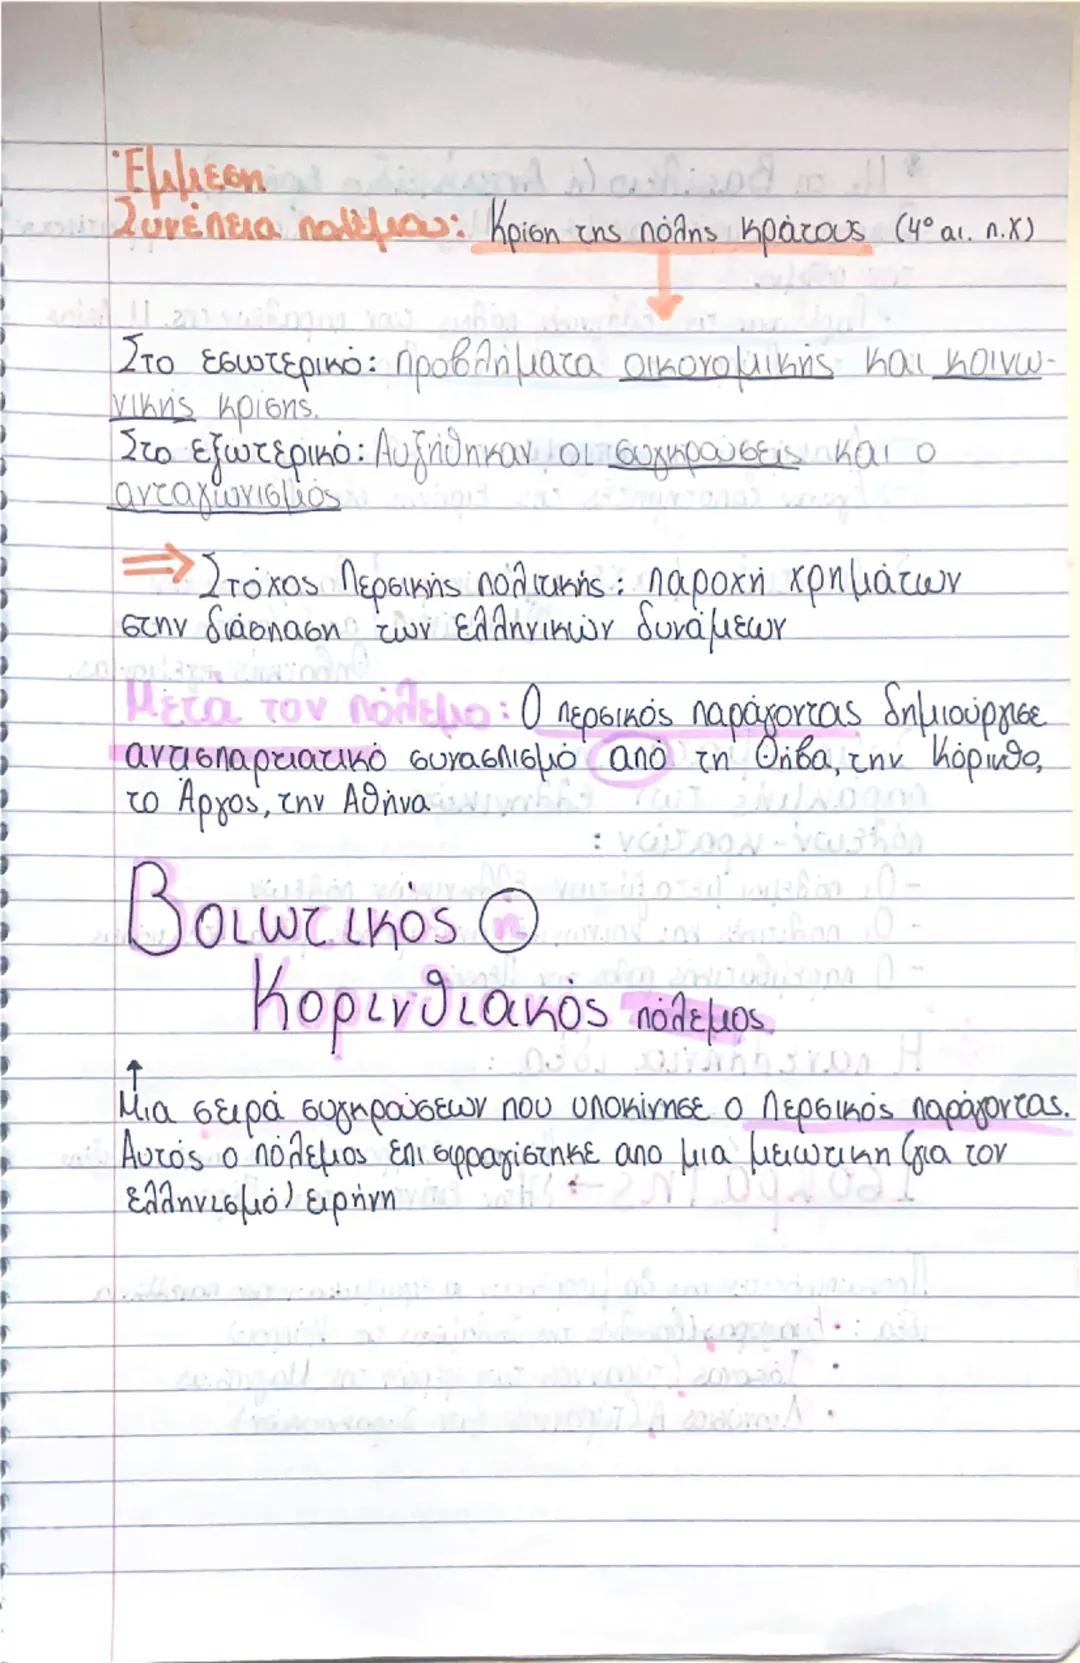 Έμμεση
Συνέπεια πολέμου: Κρίση της πόλης κράτους (4ο αι. π.Χ)
Στο εσωτερικό: προβλήματα οικονομικής και κοινω-
νικής κρίσης.
Στο εξωτερικό: Αυξήθηκαν οι συγκρούσεις και ο
ανταγωνισμός
⇒ Στόχος Περσικής πολιτικής: παροχή χρημάτων
στην διάσπαση των ελληνικών δυνάμεων
Μετά τον πόλεμο: Ο περσικός παράγοντας δημιούργησε
αντισπαρτιατικό συνασπισμό από τη Θήβα, την Κόρινθο,
το Άργος, την Αθήνα
Βοιωτικός ή
Κορινθιακός πόλεμος.
↑
Μια σειρά συγκρούσεων που υποκίνησε ο Περσικός παράγοντας.
Αυτός ο πόλεμος επισφραγίστηκε απο μια μειωτικη (για τον
ελληνισμό) ειρήνη